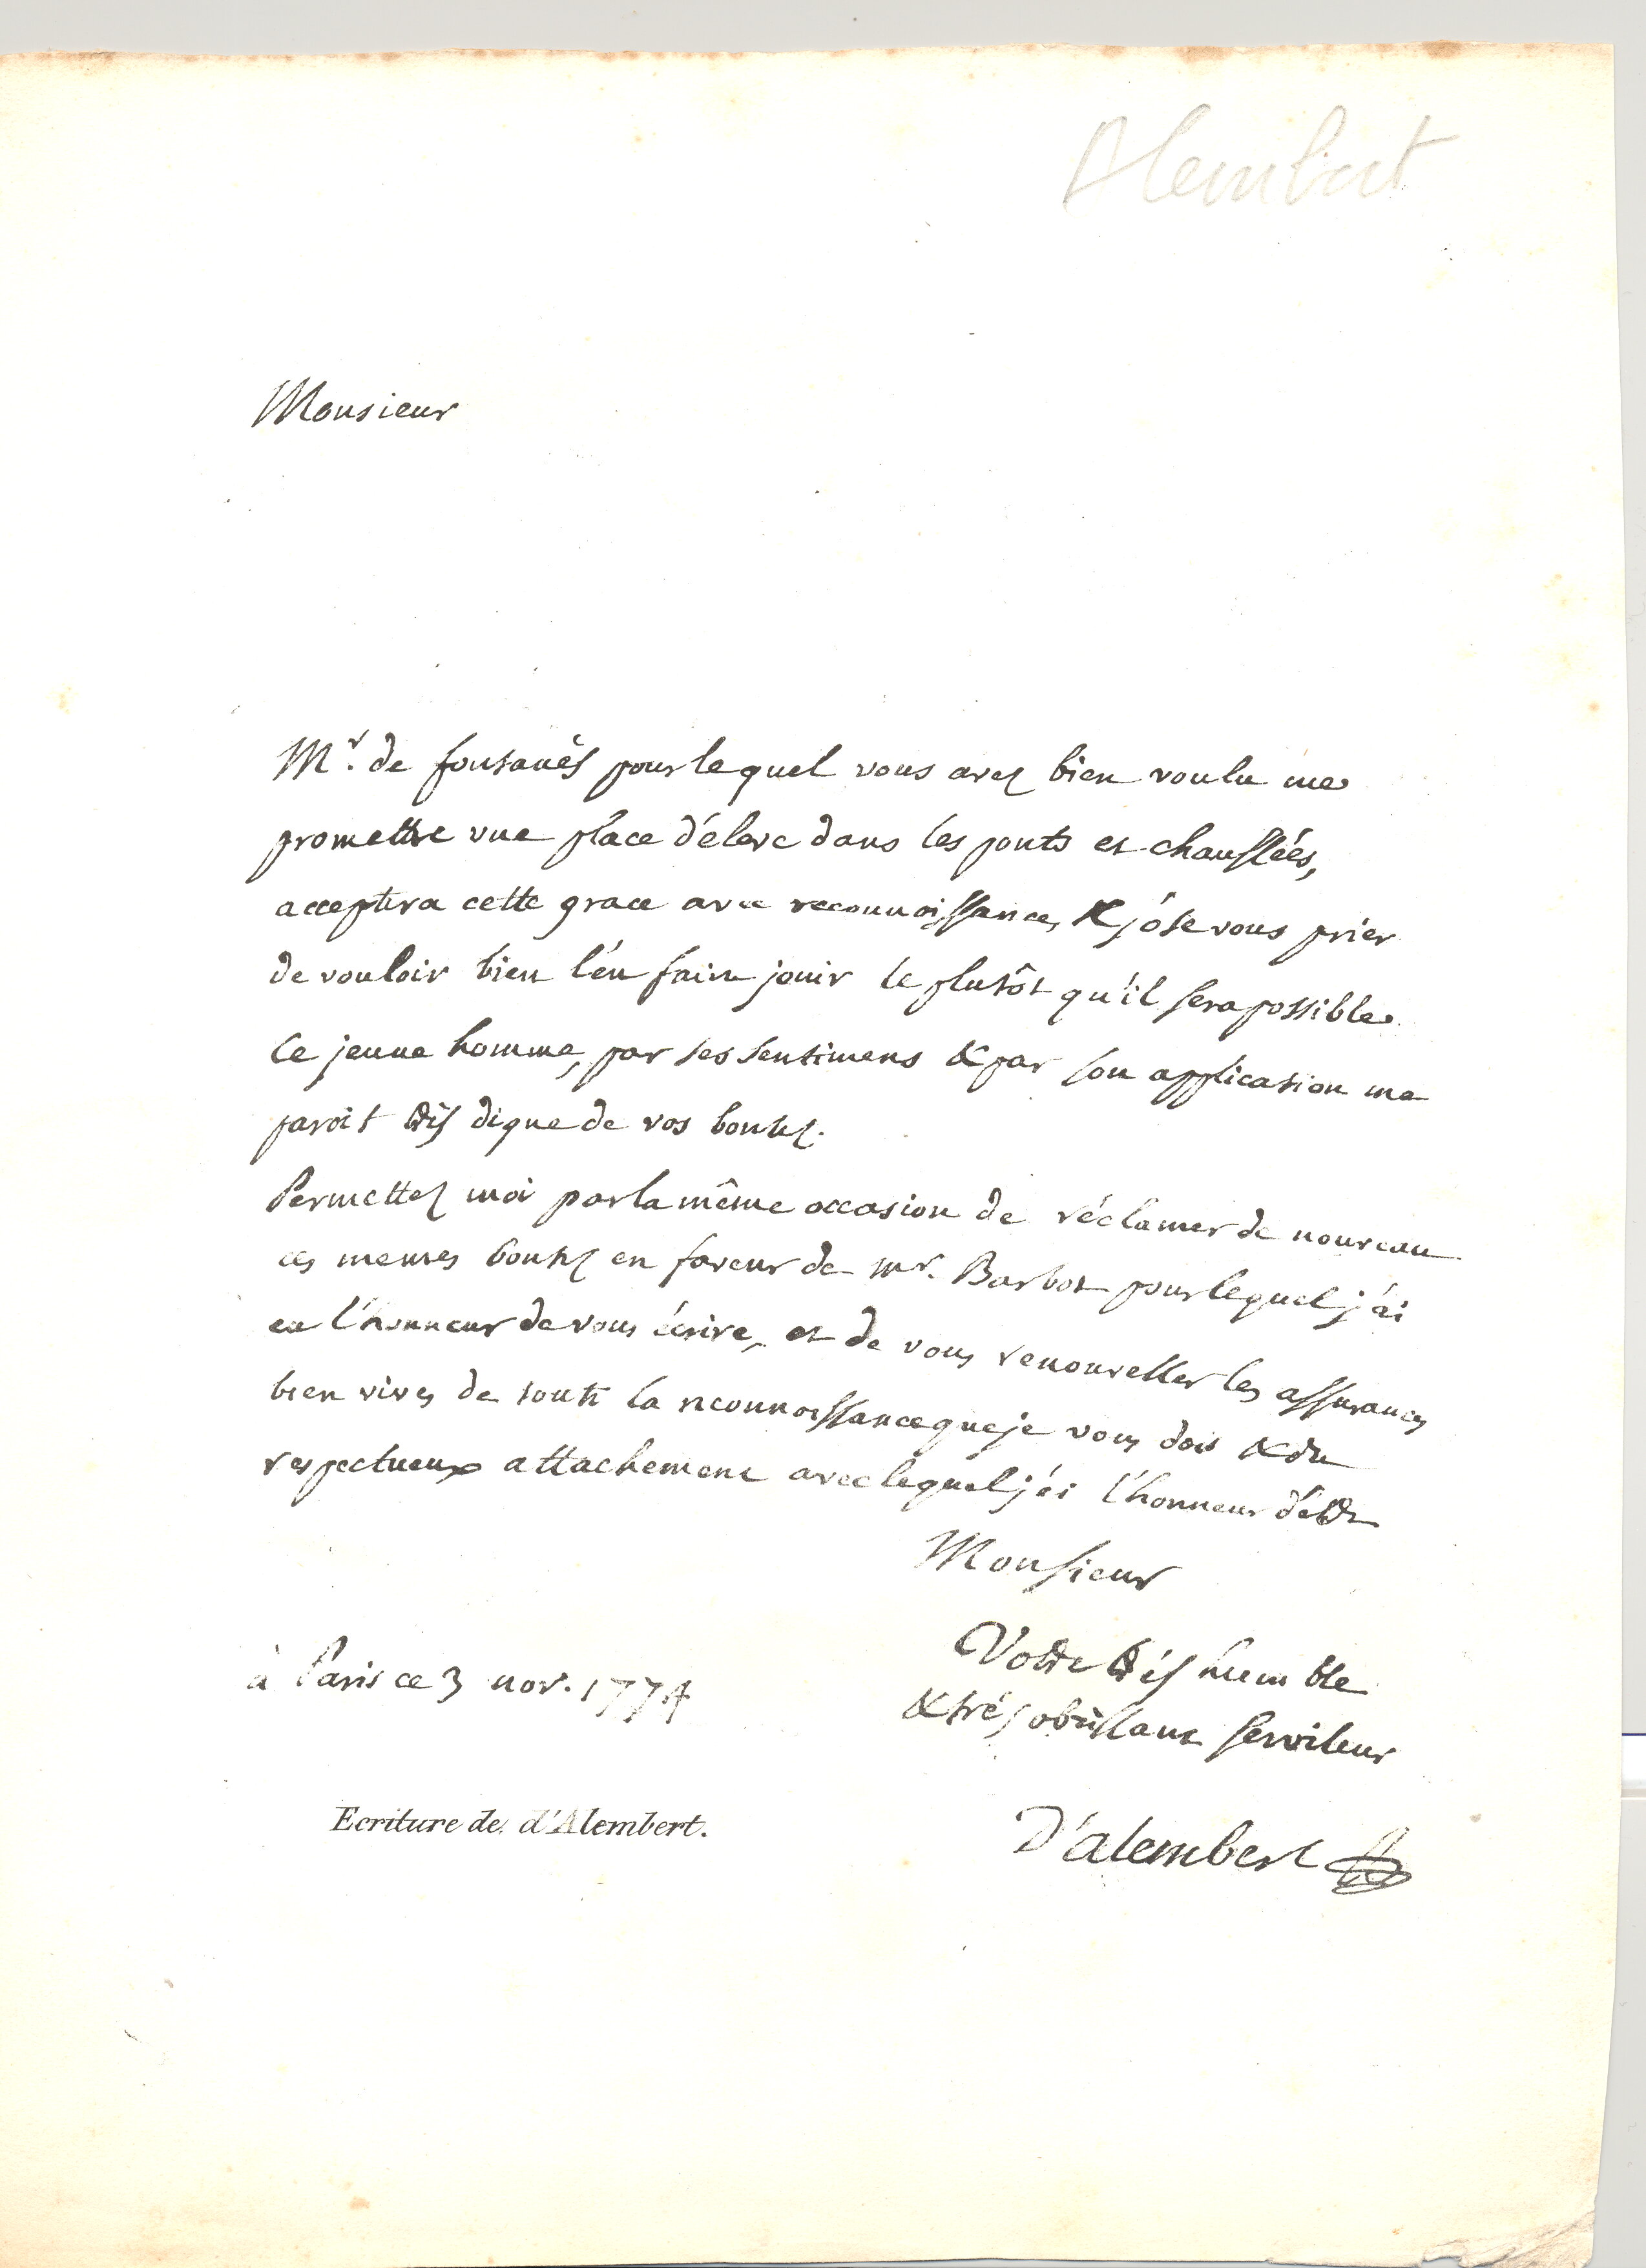 Alembert
Monsieur
Mr. de fontanès pour lequel vous avez bien voulu me
promettre une place d'éleve dans les ponts et chaussées,
acceptera cette grace avec reconnoissance, & j'ose vous prier
de vouloir bien l'en faire jouir le plutôt qu'il sera possible.
Ce jeune homme, par ses sentimens & par son application me
paroit très digne de vos bontez.
Permettez moi par la même occasion de réclamer de nouveau
ces memes bontez en faveur de mr. Barbot pour lequel j'ai
eu l'honneur de vous écrire, et de vous renouveller les assurances
bien vives de toute la reconnoissance que je vous dois & du
respectueux attachement avec lequel j'ai l'honneur d'être
Monsieur
Votre très humble
& très obéissant serviteur
à Paris ce 3 nov. 1774
D'alembert
Ecriture de d'Alembert.